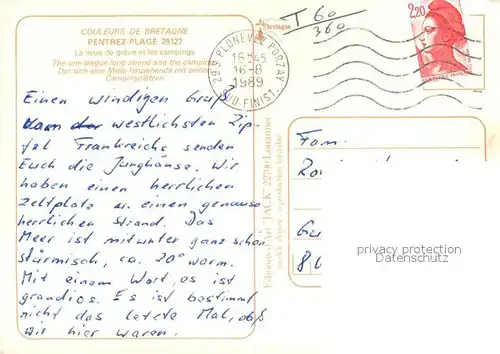 COULEURS DE BRETAGNE
PENTREZ-PLAGE 29127
La lieue de grève et les campings
The one league long strand and the camping
Der sich eine Meile hinziehende mit seinen
Campingplätzen
Einen windigen Gruß
westlichsten Zip-
fel Frankreichs senden
Euch die Junghänse. Wir
haben einen herrlichen
Zeltplatz u. einen genauso
herrlichen Strand. Das
Meer ist mitunter ganz schön
stürmisch, ca. 20° warm.
Mit einem Wort, es ist
grandios. Es ist bestimmt
nicht das letzte Mal, daß
wir hier waren.
Editions d'Art "JACK" 22700 Louannec
bretagne
T 60
360
29 S PLONEVEZ PORZAY
16H45
16-8
1989
SUD FINIST.
2,20
Fam.
privacy protection
Datenschutz